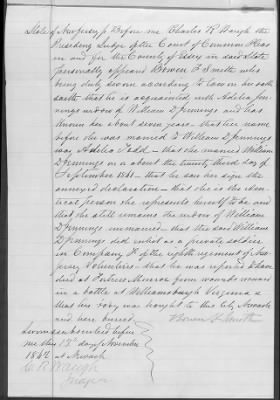 State of New Jersey ss Before me Charles R Waugh the
Presiding Judge of the Court of Common Pleas
in and for the County of Essex in said State
personally appears Bowen F Smith who
being duly sworn according to Law on his oath
saith that he is acquainted with Adelia Jen
nings widow of William D Jennings and has
known her about seven years - that her name
before she was married to William D Jennings
was Adelia Todd - that she married William
D Jennings on or about the twenty third day of
September 18 - that he saw her sign the
annexed declaration - that she is the iden
tical person she represents herself to be and
that she still remains the widow of William
D Jennings unmarried - that the said William
D Jennings did enlist as a private soldier
in Company F of the eighth regiment of New
Jersey Volunteers - that he was reported to have
died at Fortress Monroe from wounds received
in a battle at Williamsburgh Virginia &
that his body was brought to the City of Newark
and here buried
Bowen F Smith
Sworn & subscribed before
me this 13th day of November
1862 at Newark
C R Waugh